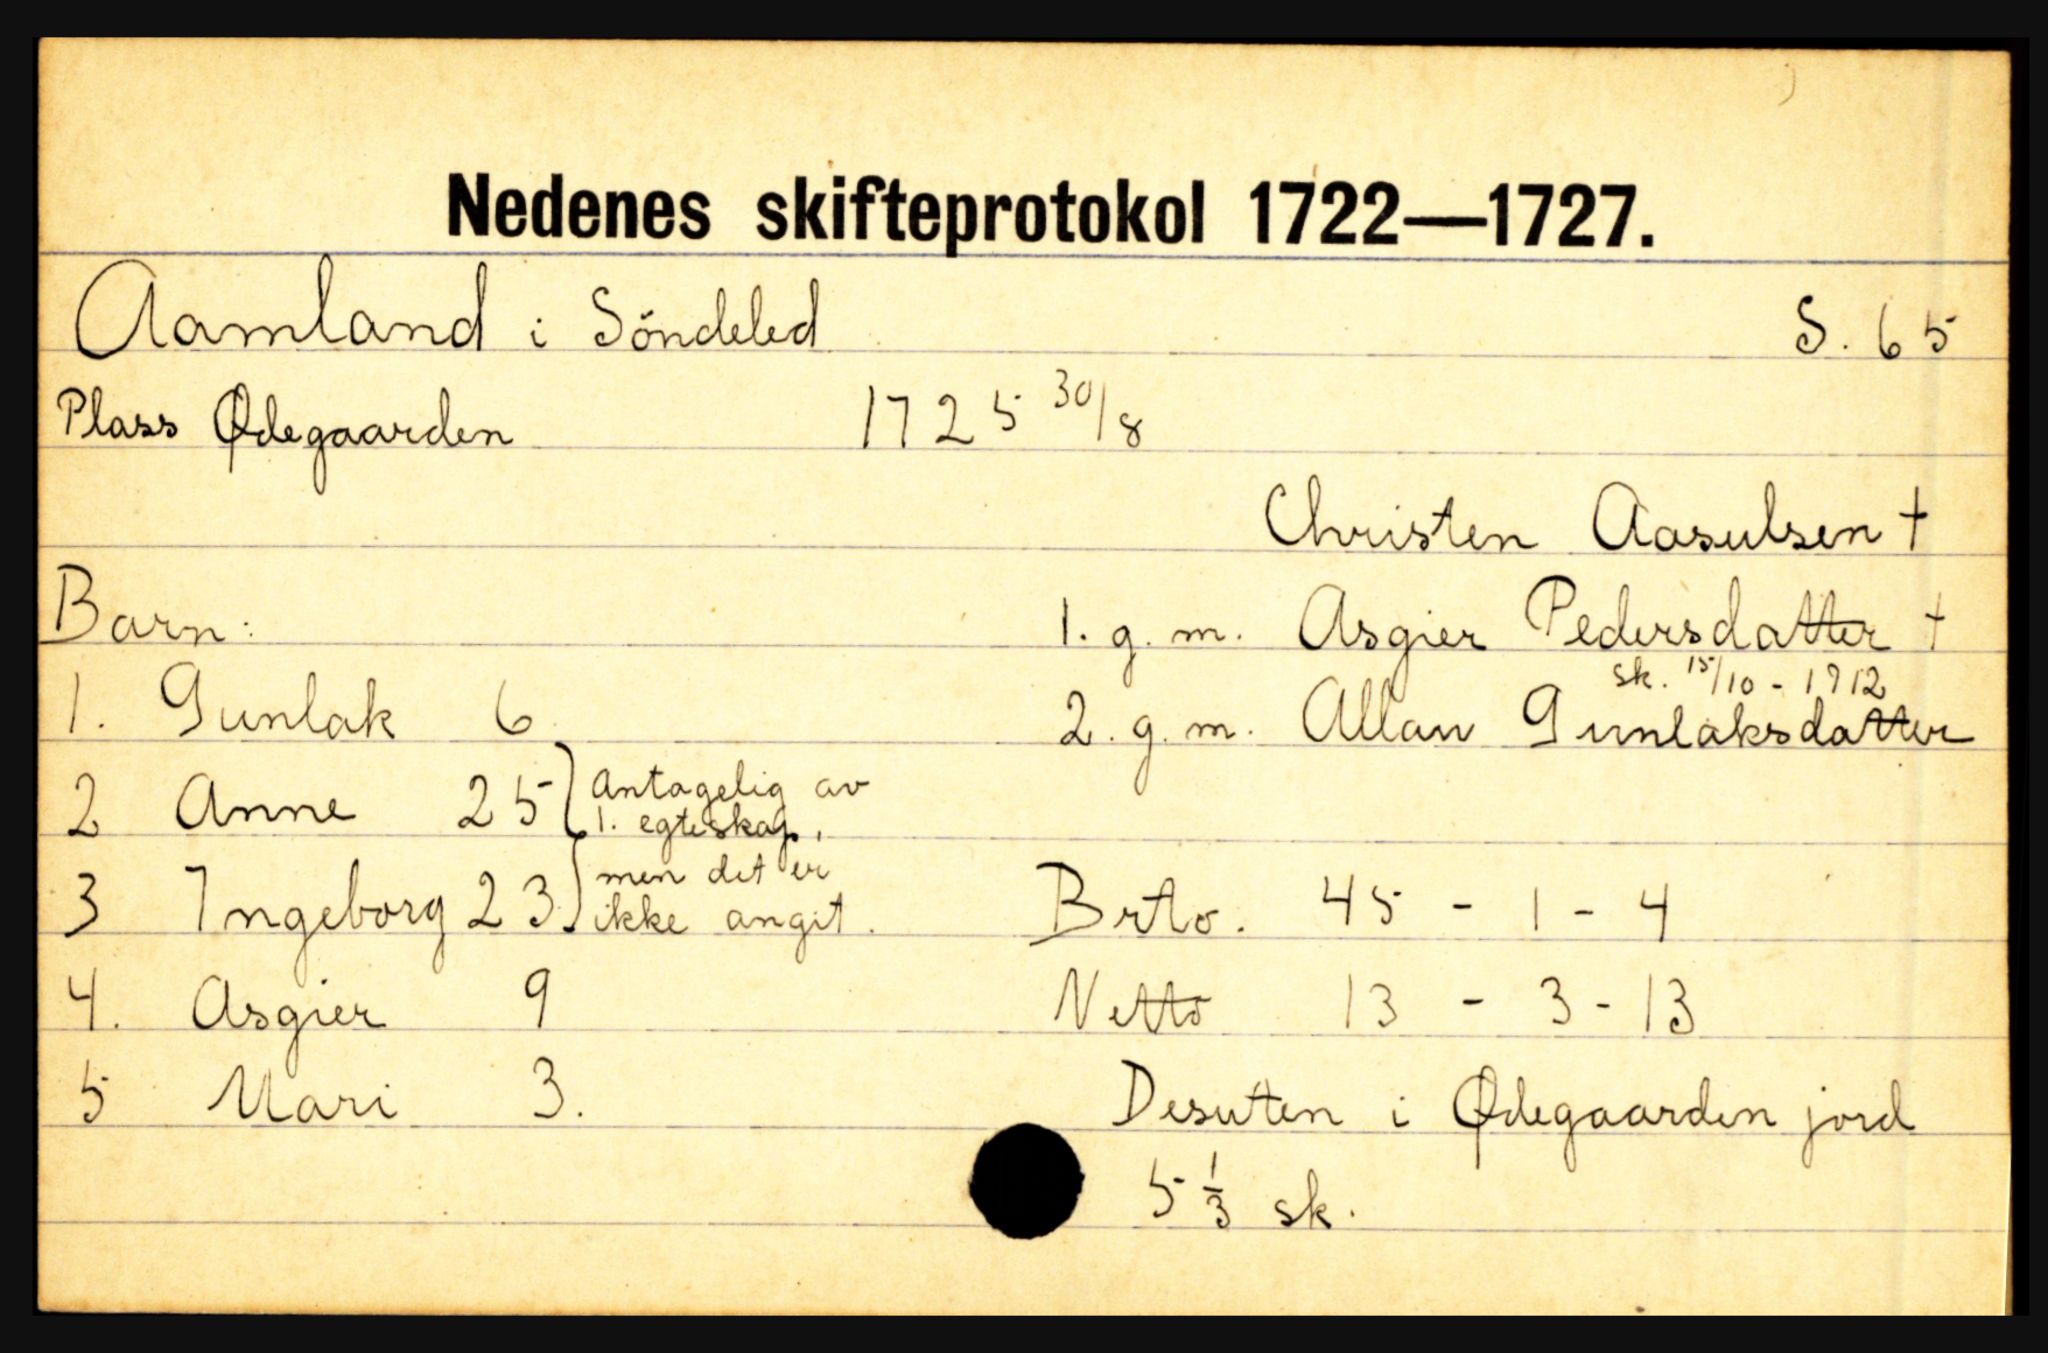 Nedenes skifteprotokol 1722—1727.
Aamland i Söndeled S. 65
Plass Ødegaarden 1725 30/8
Christen Aasulsen †
Barn: 1. g. m. Asgier Pedersdatter †
sk. 15/10 - 1712
1. Gunlak 6 2. g. m. Allau Gunlaksdatter
2 Anne 25 } Antagelig av
1. egteskap,
3 Ingeborg 23 } men det er
ikke angit. Brto. 45 - 1 - 4
4. Asgier 9 Netto 13 - 3 - 13
5 Mari 3. Desuten i Ødegaarden jord
5 1/3 sk.